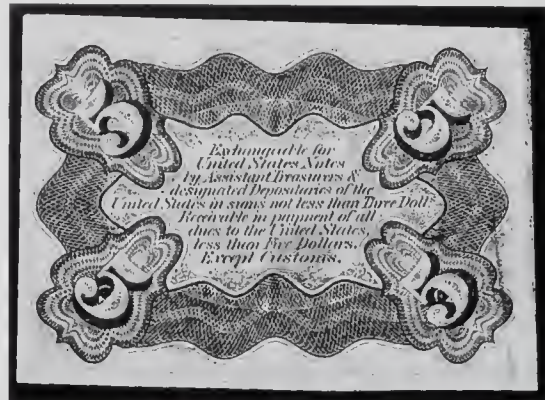 5 5
Exhangeable for
United States Notes
by Assistant Treasurers &
designated Depositaries of the
United States in sums not less than Three Doll.s
Receivable in payment of all
dues to the United States,
less than Five Dollars,
Except Customs.
5 5